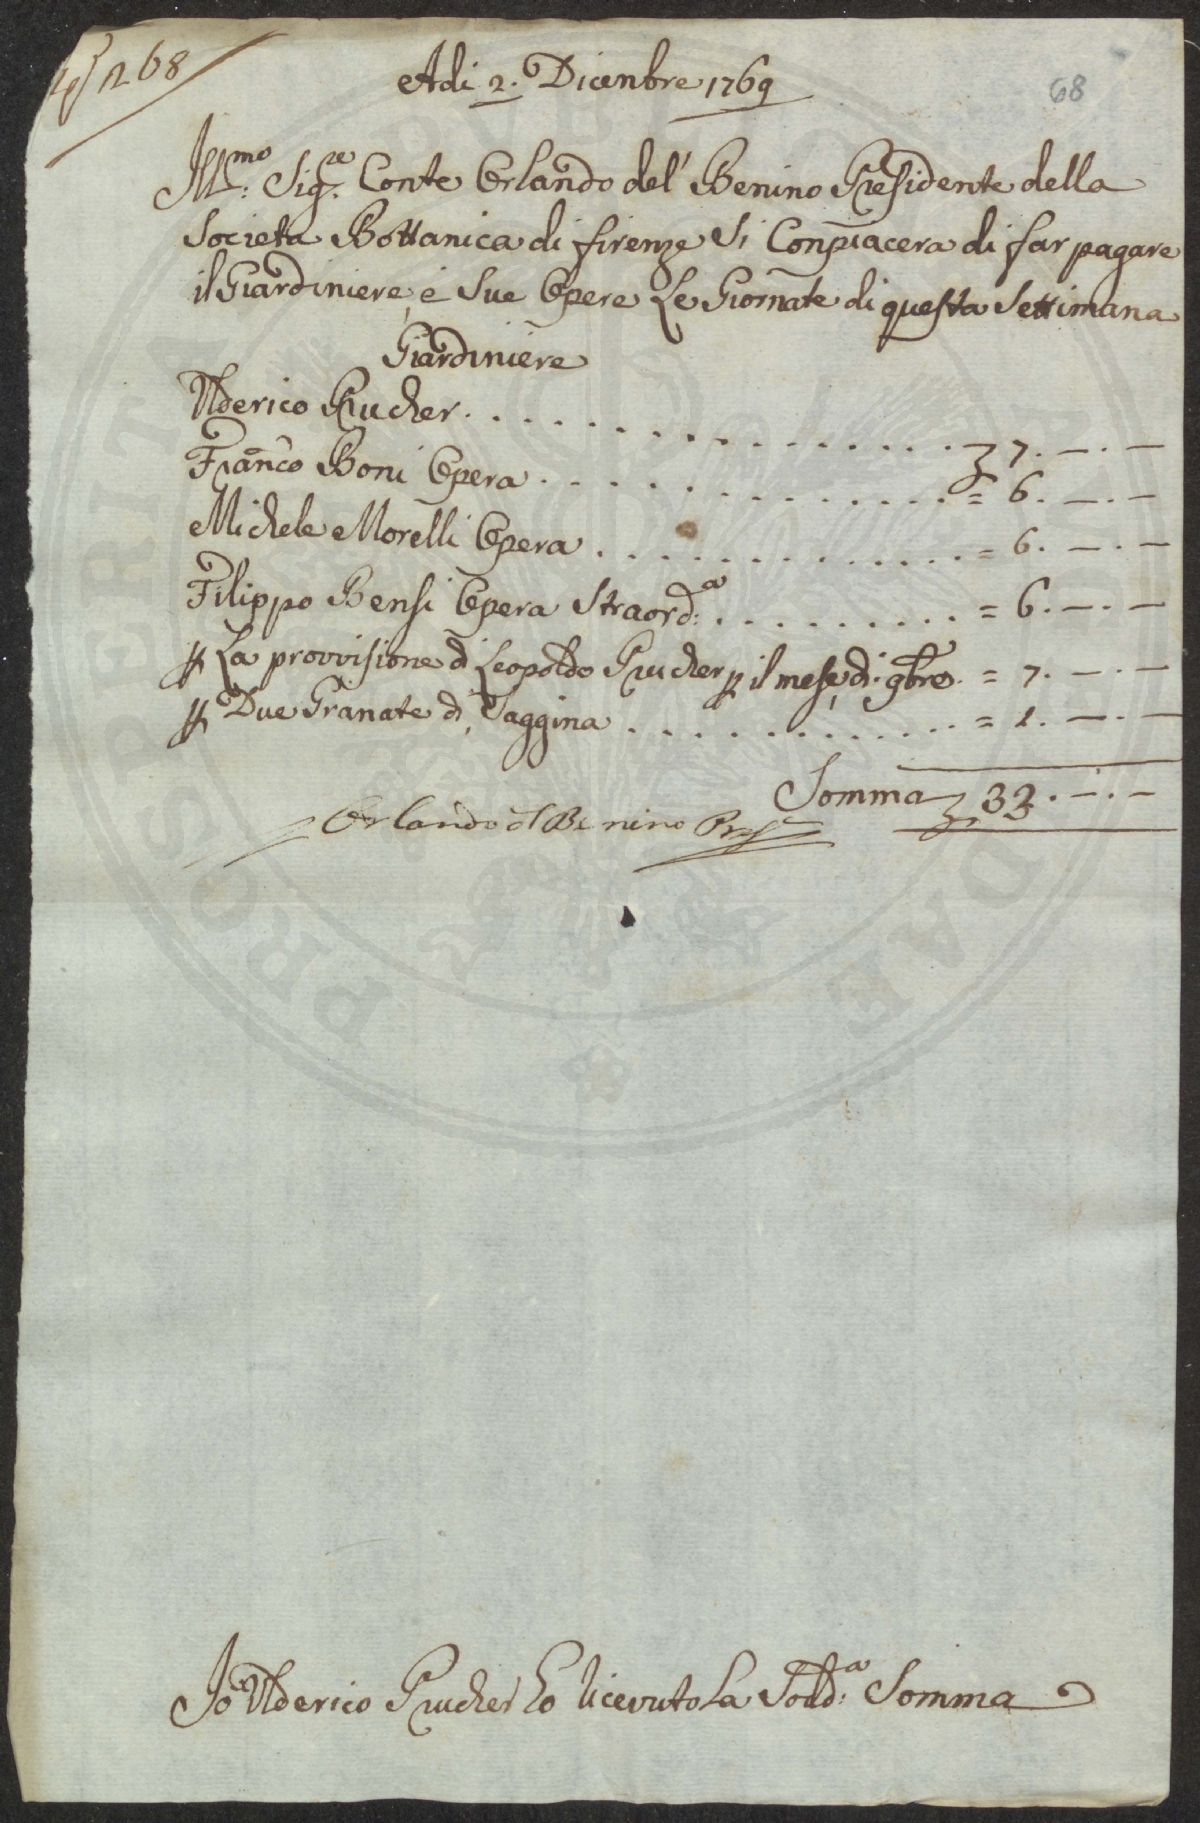 N 268
68
Adi 2. Dicenbre 1769
Ill.mo Sig.re Conte Orlando del' Benino Presidente della
Societa Bottanica di firenze Si Conpiacera di far pagare
il Giardiniere, e Sue Opere Le Giornate di questa Settimana
Giardiniere
Ulderico Prucher . . . . . . . . . . . . . . . . 7. —. —
Franco Boni Opera . . . . . . . . . . . . . . = 6. —. —
Michele Morelli Opera . . . . . . . . . . . . = 6. —. —
Filippo Bensi Opera Straord:a . . . . . . . . . = 6. —. —
p La provvisione di Leopoldo Prucher p il mese, di 9bre = 7. —. —
p Due Granate di Saggina . . . . . . . . . . . = 1. —. —
Somma 33. —. —
Orlando del Benino Pres.
Io Ulderico Prucher ho Ricevuto La Sodd:a Somma